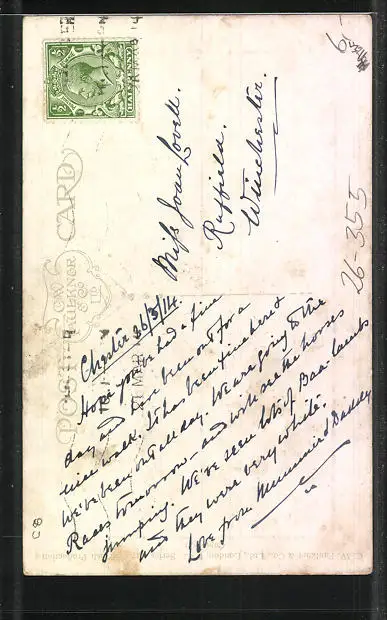 Miss Joan Lovell.
Ruffield.
Winchester.
Chester 26/3/14
Hope you've had a fine
day and have been out for a
nice walk. It has been fine here &
We've been out all day. We are going to the
Races tomorrow - and will see the horses
jumping. We've seen lots of Baa-lambs
and they were very white.
Love from Mummie & Daddy
26-355
POST CARD
C.W.
FAULKNER
& CO
LTD
C.W. Faulkner & Co., Ltd., London,